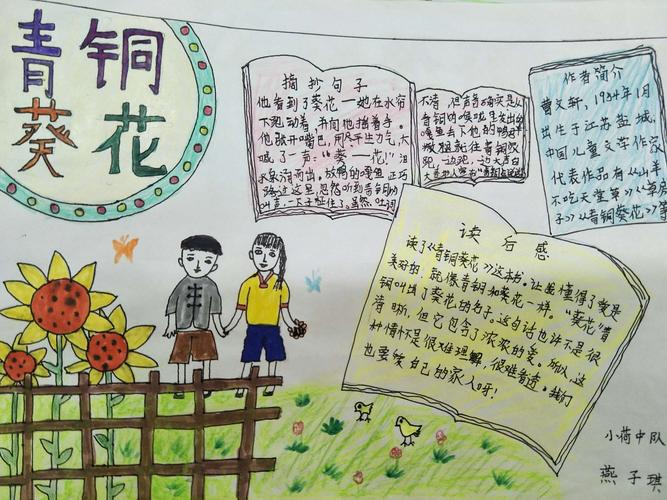 青铜
葵花
摘抄句子
他看到了葵花——她在水帘
下跑动着,并向他招着手。
他张开嘴巴,用尽平生力气,大
喊了一声:“葵—花!”泪
水泉涌而出,放鸭的嘎鱼,正巧
路过这里,忽然听到青铜的
叫声,一下子怔住了。虽然,吐词
不清,但声音确实是从
青铜的喉咙里发出的
嘎鱼丢下他的鸭群
跑,一边跑,一边大声白
作者简介
曹文轩,1954年1月
出生于江苏盐城,
中国儿童文学作家
代表作品有《山羊
不吃天堂草》《草房
子》《青铜葵花》等
读后感
读了《青铜葵花》这本书。让我懂得了爱是
美好的,就像青铜和葵花一样。“葵花”青
铜叫出了葵花的句子。这句诗也许不是很
清晰,但它包含了浓浓的爱。所以,这
种情不是很难理解,很难看透。我们
也要爱自己的家人呀!
小荷中队
燕子琪